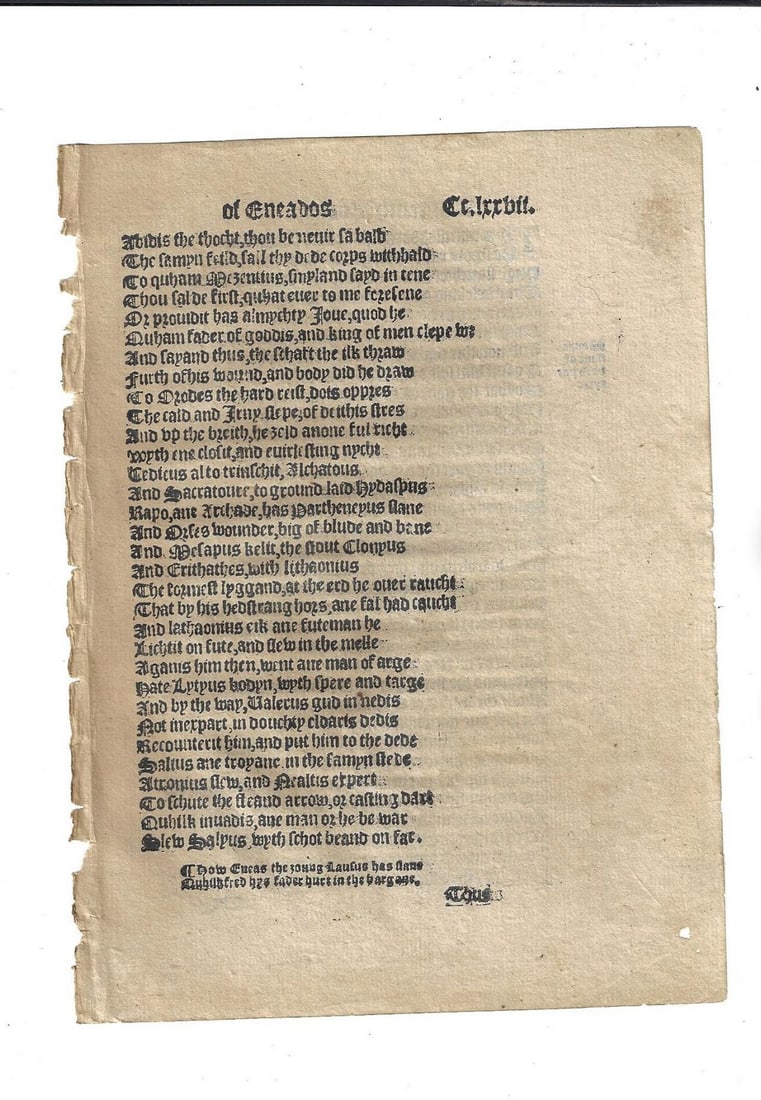 of Eneados Cc.lxxvii.
Abidis the thocht, thou be neuir sa bald
The samyn feild, sall thy dede corps withhald
To quham Mezentius, smyland sayd in tene
Thou sal de first, quhat euer to me foresene
Or prouidit has almychty Joue, quod he
Quham fader of goddis, and king of men clepe we
And sayand thus, the schaft the ilk thraw
Furth of his wound, and body did he draw
To Orodes the hard reist, dois oppres
The cald and Irny slepe, of deithis stres
And vp the breith, he zeld anone ful richt
wyth ene closit, and euirlesting nycht
Cedicus al to trinschit, Alchatous
And Sacratoure, to ground laid Hydaspus
Rapo, ane Archade, has Parthenyus slane
And Orses wounder, big of blude and bane
And Mesapus kelit, the stout Clonyus
And Erithathes, with lithaonius
The formest lyggand, at the erd he ouer raucht
That by his hedstrang hors, ane fal had caucht
And lathaonius eik ane futeman he
Lichtit on fute, and slew in the melle
Aganis him then, went ane man of arge
Hate Lytyus bodyn, wyth spere and targe
And by the way, Ualerus gud in nedis
Not inexpart, in douchty eldaris dedis
Recounterit him, and put him to the dede
Salius ane troyane in the samyn stede
Atronius slew, and Nealtis expert
To schute the fleand arrow, or casting dart
Quhilk inuadis, ane man or he be war
Slew Salyus, wyth schot beand on far.
¶ How Eneas the zoung Lausus has slane
Quhilk fred hys fader hurt in the bargane.
Thus